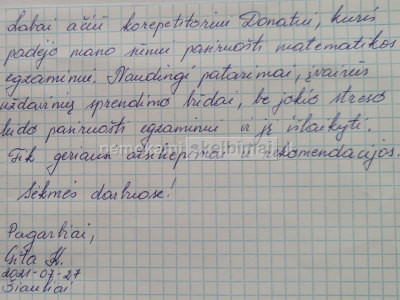 Labai ačiū korepetitoriui Donatui, kuris
padėjo mano sūnui pasiruošti matematikos
egzaminui. Naudingi patarimai, įvairūs
uždavinių sprendimo būdai, be jokio streso
leido pasiruošti egzaminui ir jį išlaikyti.
Tik geriausi atsiliepimai ir rekomendacijos.
nemokami.skelbimai.lt
Sėkmės darbuose!
Pagarbiai,
Gita K.
2021-07-27
Šiauliai